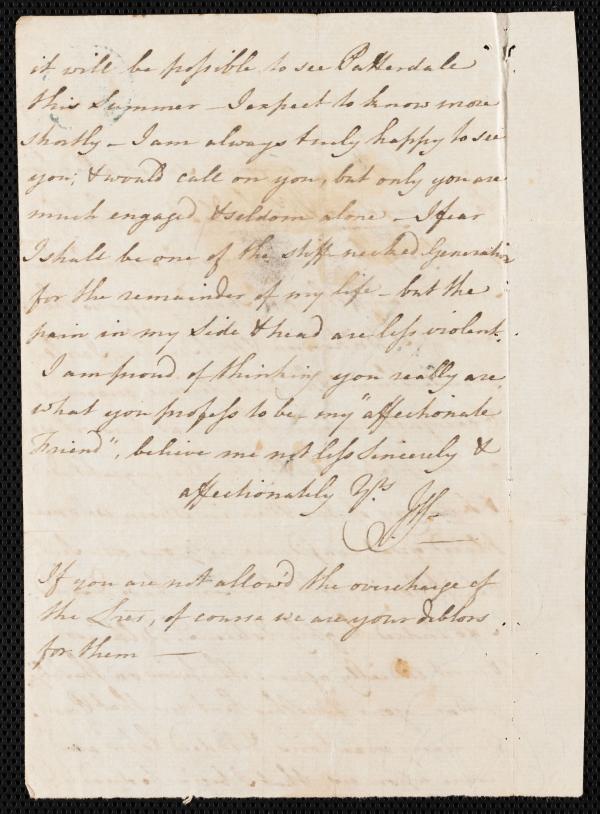 it will be possible to see Patterdale
this Summer – I expect to know more
shortly – I am always truly happy to see
you, & would call on you, but only you are
much engaged & seldom alone – I fear
I shall be one of the stiff-necked Generation
for the remainder of my life – but the
pain in my side & head are less violent.
I am proud of thinking you really are
what you profess to be my "affectionate
Friend", believe me not less sincerely &
affectionately Yrs
If you are not allow'd the overcharge of
the Lres, of course we are your debtors
for them —